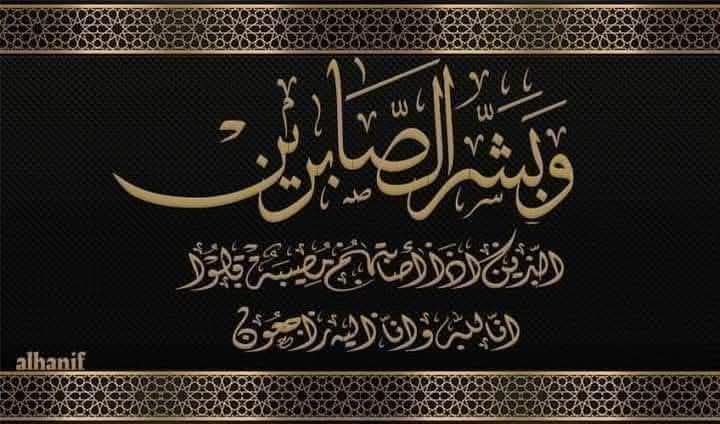 وَبَشِّرِ الصَّابِرِين
الذين اذا أصابتهم مصيبة قالوا
انا لله وانا اليه راجعون
alhanif